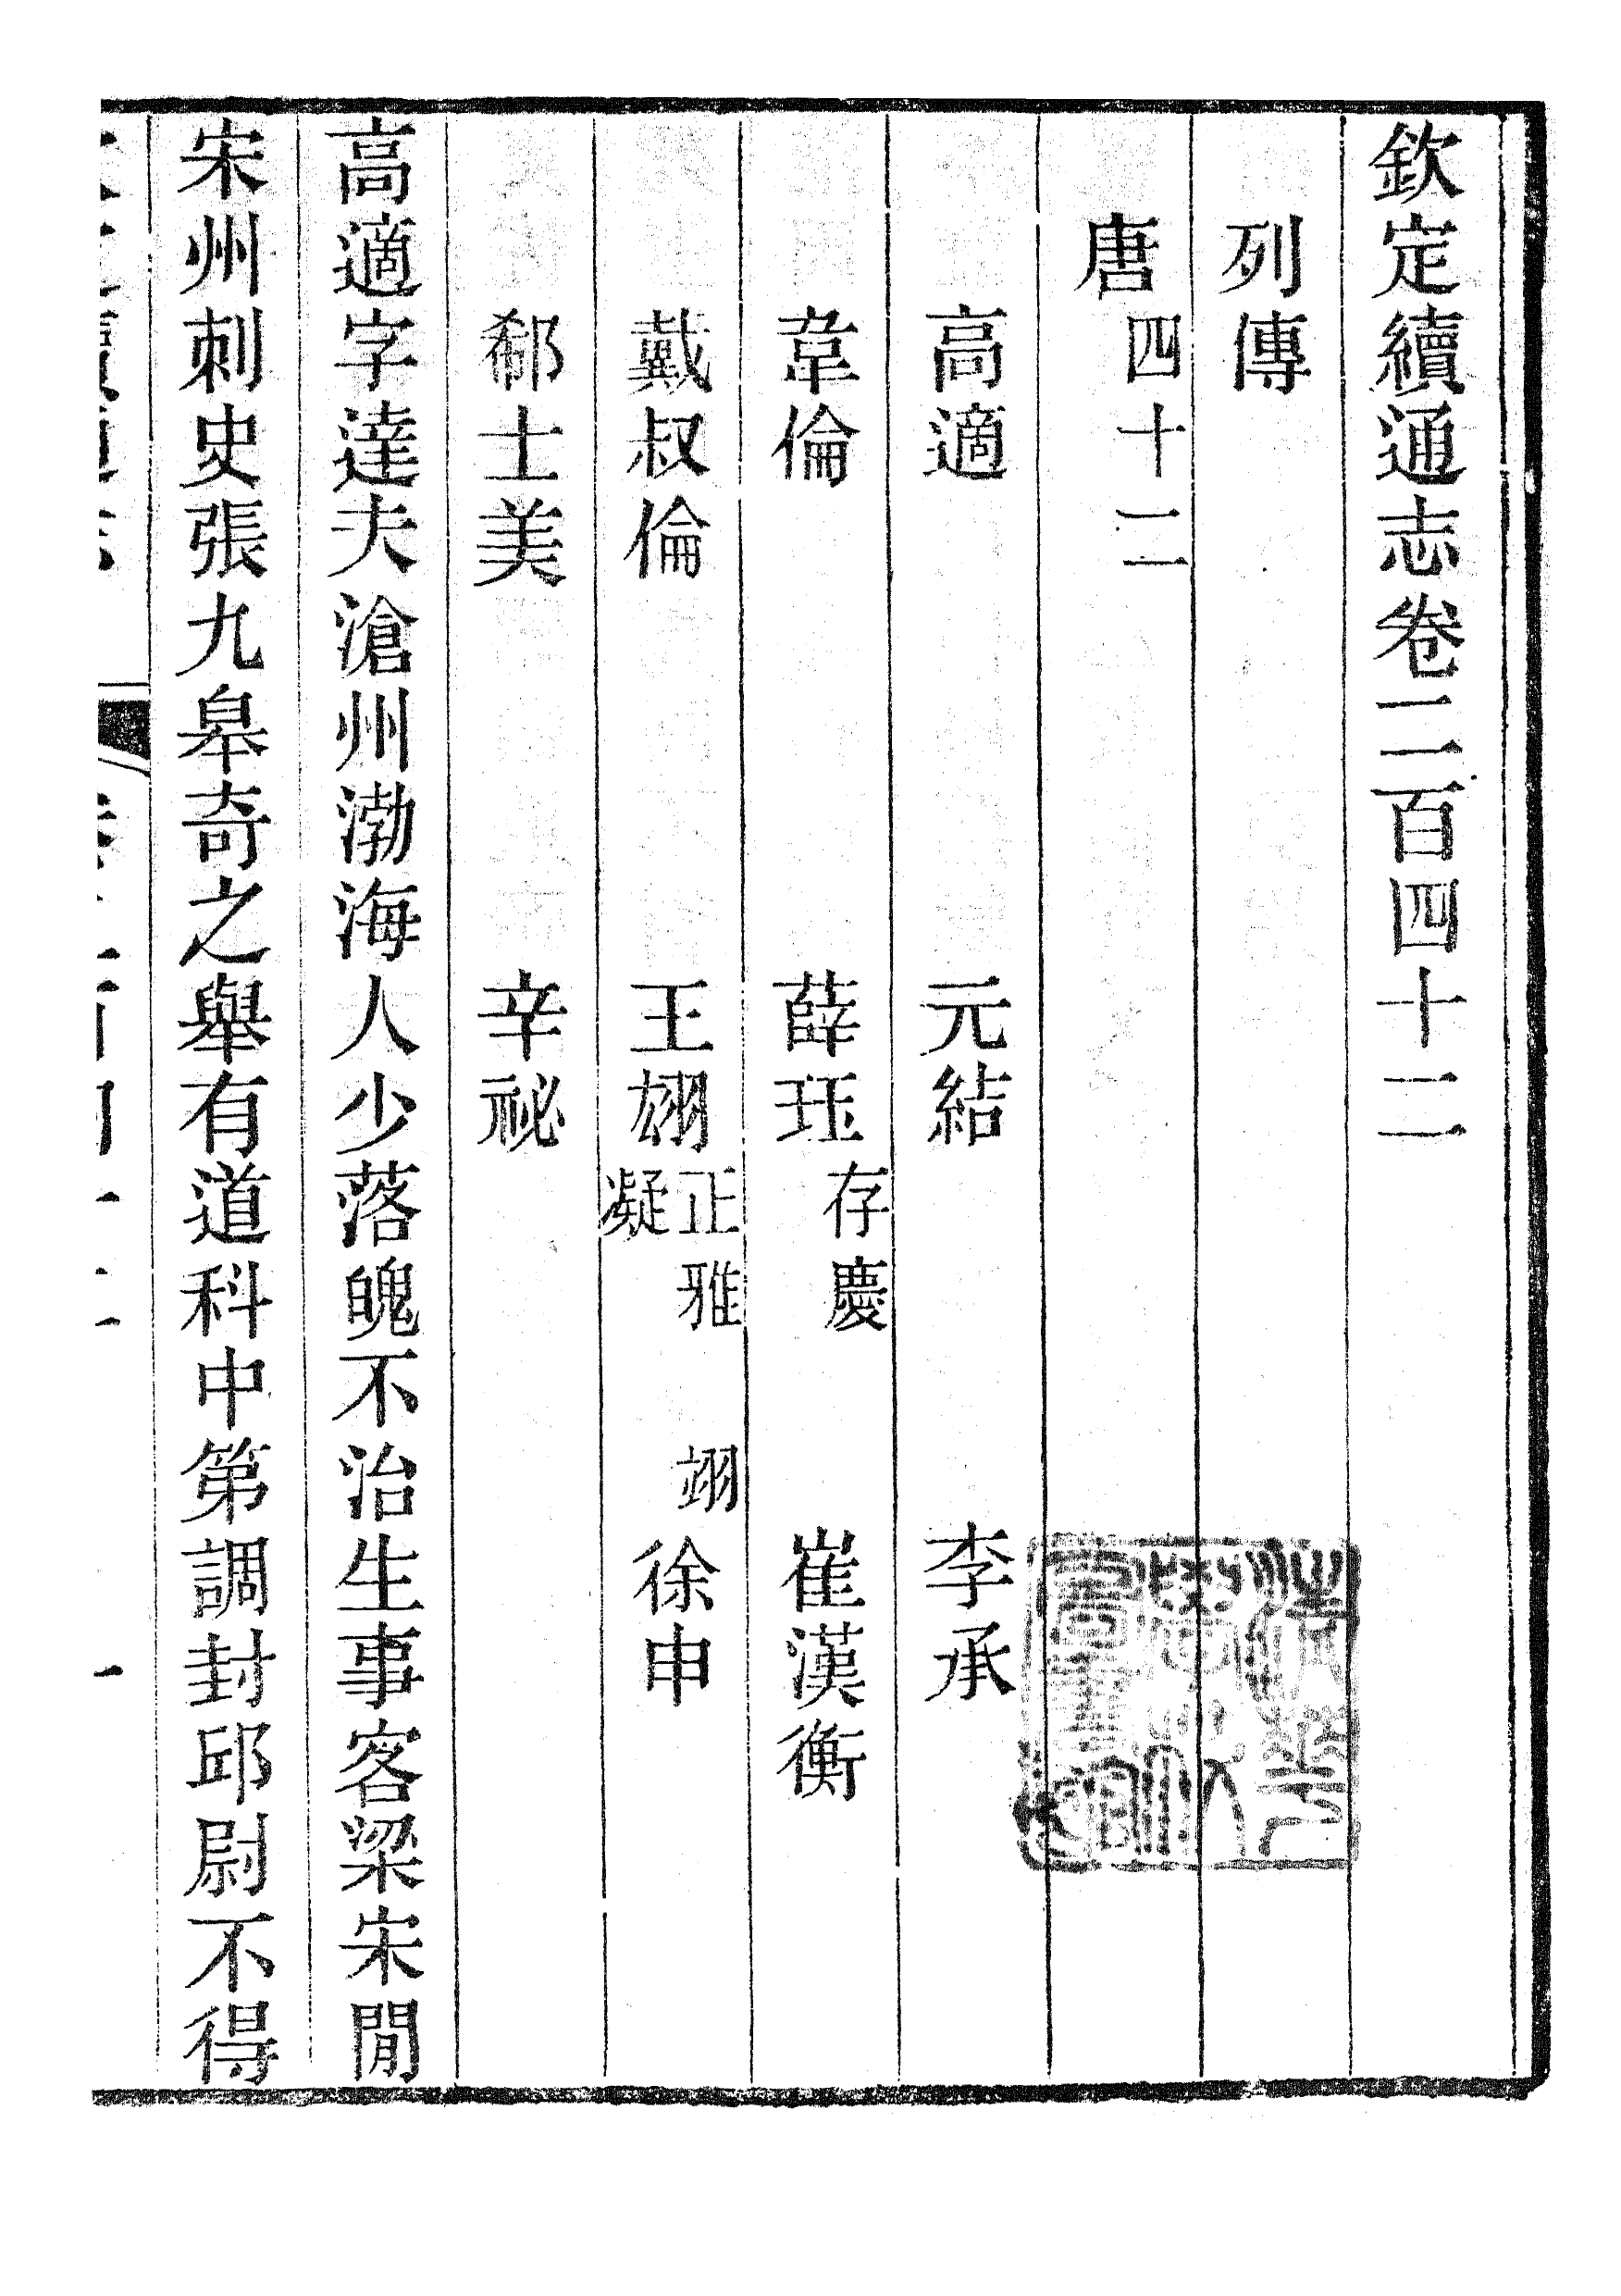 欽定續通志卷二百四十二
列傳
唐四十二
高適 元結 李承
韋倫 薛珏存慶 崔漢衡
戴叔倫 王翃正雅 翊 凝 徐申
郗士美 辛祕
高適字達夫滄州渤海人少落魄不治生事客梁宋閒
宋州刺史張九皋奇之舉有道科中第調封邱尉不得